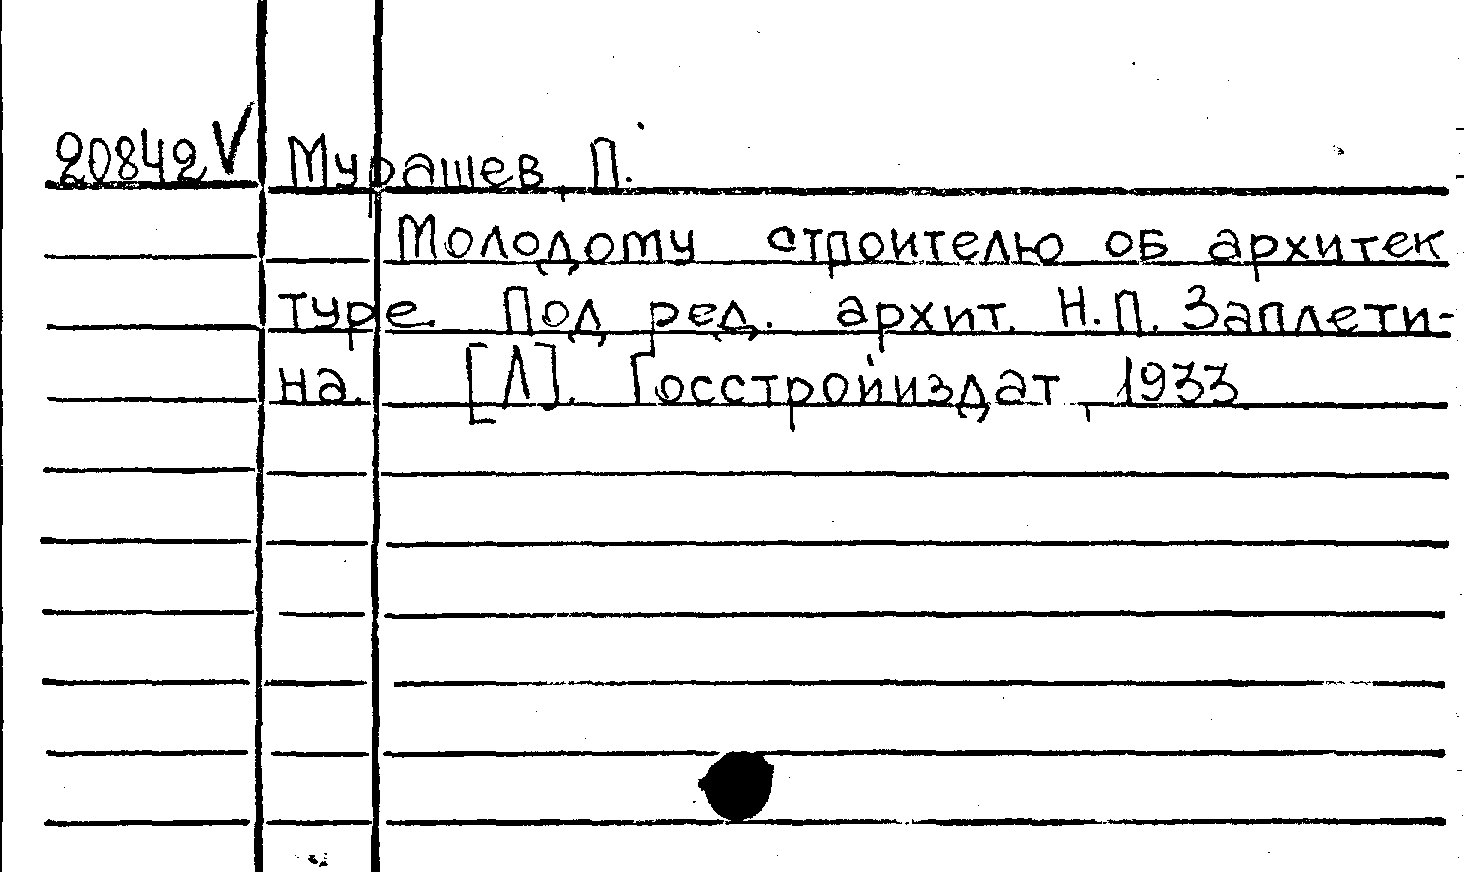 20842 V Мурашев, П.
Молодому строителю об архитек
туре. Под ред. архит. Н.П. Заплети-
на. [Л]. Госстройиздат, 1933